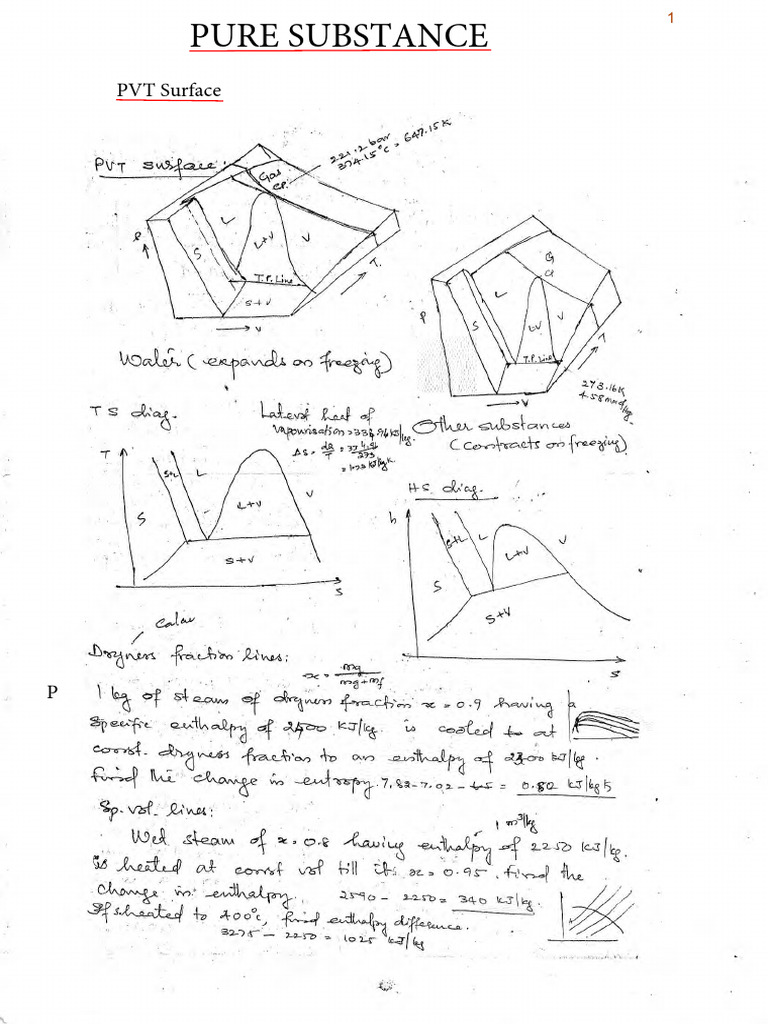 1
PURE SUBSTANCE
PVT Surface
PVT surface:
221.2 bar
374.15°C = 647.15K
Gas
CP.
P
L
S
L+V
V
T.P. Line
S+V
T.
V
G
L
P
S
LV
V
T.P. Line
T
V
273.16K
Water (expands on freezing)
Other substances
(contracts on freezing)
TS diag.
Latent heat of
vapourisation = 334.96 KJ/kg.
T
S
S+L
L
L+V
V
S+V
S
HS diag.
h
S
S+L
L
L+V
V
S+V
S
Dryness fraction lines:
x = mg / mg+mf
P
1 kg of steam of dryness fraction x = 0.9 having
specific enthalpy of 2500 KJ/kg. is cooled at
const. dryness fraction to an enthalpy of 2300 KJ/kg.
find the change in entropy. 7.82-7.02 = 0.80 KJ/kg
Sp. vol. lines:
1 m³/kg
Wet steam of x = 0.8 having enthalpy of 2250 KJ/kg.
is heated at const vol till its x = 0.95. find the
change in enthalpy. 2590 - 2250 = 340 KJ/kg.
If heated to 400°C, find enthalpy difference.
3275 - 2250 = 1025 KJ/kg